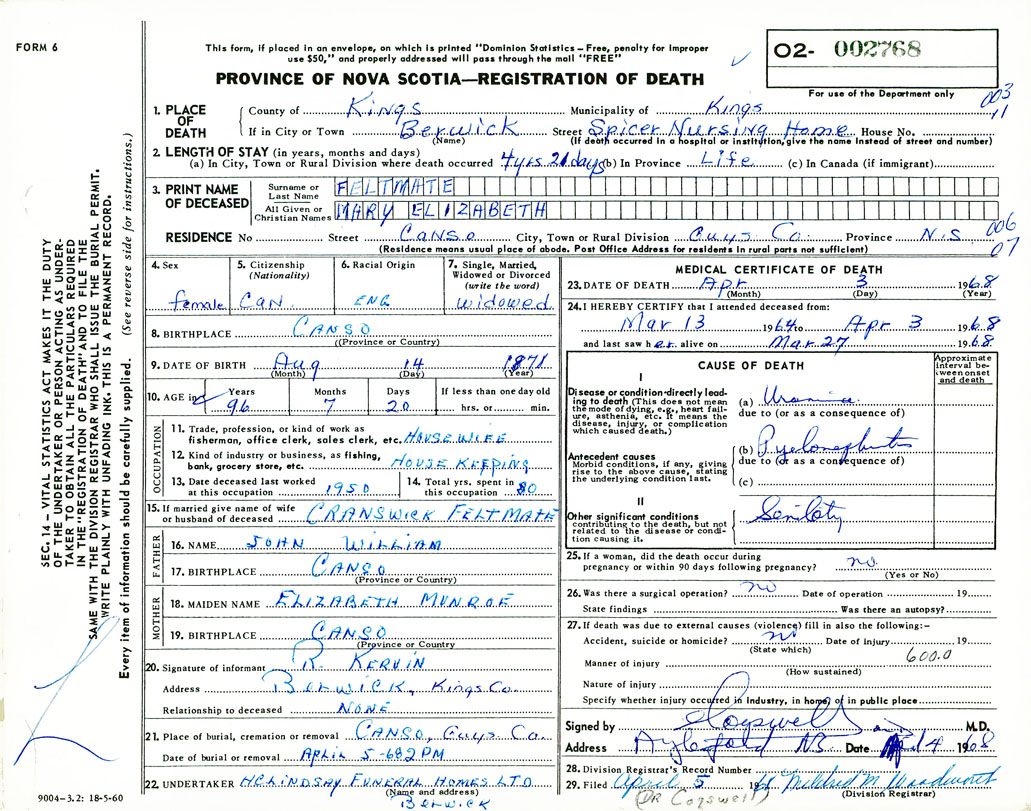 FORM 6
This form, if placed in an envelope, on which is printed "Dominion Statistics – Free, penalty for improper
use $50," and properly addressed will pass through the mail "FREE"
PROVINCE OF NOVA SCOTIA—REGISTRATION OF DEATH
O2- 002768
For use of the Department only
003
11
1. PLACE OF DEATH
County of Kings Municipality of Kings
If in City or Town Berwick Street Spicer Nursing Home House No.
(Name) (If death occurred in a hospital or institution, give the name instead of street and number)
2. LENGTH OF STAY (in years, months and days)
(a) In City, Town or Rural Division where death occurred 4 yrs 21 days (b) In Province Life (c) In Canada (if immigrant)
3. PRINT NAME OF DECEASED
Surname or Last Name FELTMATE
All Given or Christian Names MARY ELIZABETH
RESIDENCE No Street CANSO City, Town or Rural Division Guys Co. Province N.S.
006
07
(Residence means usual place of abode. Post Office Address for residents in rural parts not sufficient)
4. Sex female
5. Citizenship (Nationality) CAN.
6. Racial Origin ENG
7. Single, Married, Widowed or Divorced (write the word) widowed
8. BIRTHPLACE CANSO
(Province or Country)
9. DATE OF BIRTH Aug 14 1871
(Month) (Day) (Year)
10. AGE in Years 96 Months 7 Days 20 If less than one day old hrs. or min.
OCCUPATION
11. Trade, profession, or kind of work as
fisherman, office clerk, sales clerk, etc. HOUSEWIFE
12. Kind of industry or business, as fishing,
bank, grocery store, etc. HOUSE KEEPING
13. Date deceased last worked at this occupation 1950
14. Total yrs. spent in this occupation 80
15. If married give name of wife
or husband of deceased CRANSWICK FELTMATE
FATHER
16. NAME JOHN WILLIAM
17. BIRTHPLACE CANSO
(Province or Country)
MOTHER
18. MAIDEN NAME ELIZABETH MUNROE
19. BIRTHPLACE CANSO
(Province or Country
20. Signature of informant R. KERVIN
Address Berwick, Kings Co.
Relationship to deceased NONE
21. Place of burial, cremation or removal CANSO, Guys Co.
Date of burial or removal April 5 -68 2 PM
22. UNDERTAKER H C LINDSAY FUNERAL HOMES LTD
(Name and address)
BERWICK
MEDICAL CERTIFICATE OF DEATH
23. DATE OF DEATH Apr 3 1968
(Month) (Day) (Year)
24. I HEREBY CERTIFY that I attended deceased from:
Mar 13 1964 to Apr 3 1968
and last saw her alive on Mar 27 1968
CAUSE OF DEATH
Approximate interval between onset and death
I
Disease or condition directly leading to death (This does not mean the mode of dying, e.g., heart failure, asthenia, etc. It means the disease, injury, or complication which caused death.)
(a) Uraemia
due to (or as a consequence of)
Antecedent causes
Morbid conditions, if any, giving rise to the above cause, stating the underlying condition last.
(b) Pyelonephritis
due to (or as a consequence of)
(c)
II
Other significant conditions
contributing to the death, but not related to the disease or condition causing it.
Senility
25. If a woman, did the death occur during
pregnancy or within 90 days following pregnancy? no
(Yes or No)
26. Was there a surgical operation? no Date of operation 19
State findings Was there an autopsy?
27. If death was due to external causes (violence) fill in also the following:–
Accident, suicide or homicide? no Date of injury 19
(State which)
600.0
Manner of injury
(How sustained)
Nature of injury
Specify whether injury occurred in industry, in home, or in public place
Signed by Cogswell M.D.
Address Aylesford NS Date Apl 4 1968
28. Division Registrar's Record Number
29. Filed April 5 1968 Mildred M Woodworth
(Division Registrar)
(DR Cogswell)
SEC. 14 – VITAL STATISTICS ACT MAKES IT THE DUTY
OF THE UNDERTAKER OR PERSON ACTING AS UNDER-
TAKER TO OBTAIN ALL THE PARTICULARS REQUIRED
IN THE "REGISTRATION OF DEATH" AND TO FILE THE
SAME WITH THE DIVISION REGISTRAR WHO SHALL ISSUE THE BURIAL PERMIT.
WRITE PLAINLY WITH UNFADING INK. THIS IS A PERMANENT RECORD.
Every item of information should be carefully supplied. (See reverse side for instructions.)
9004–3.2: 18-5-60